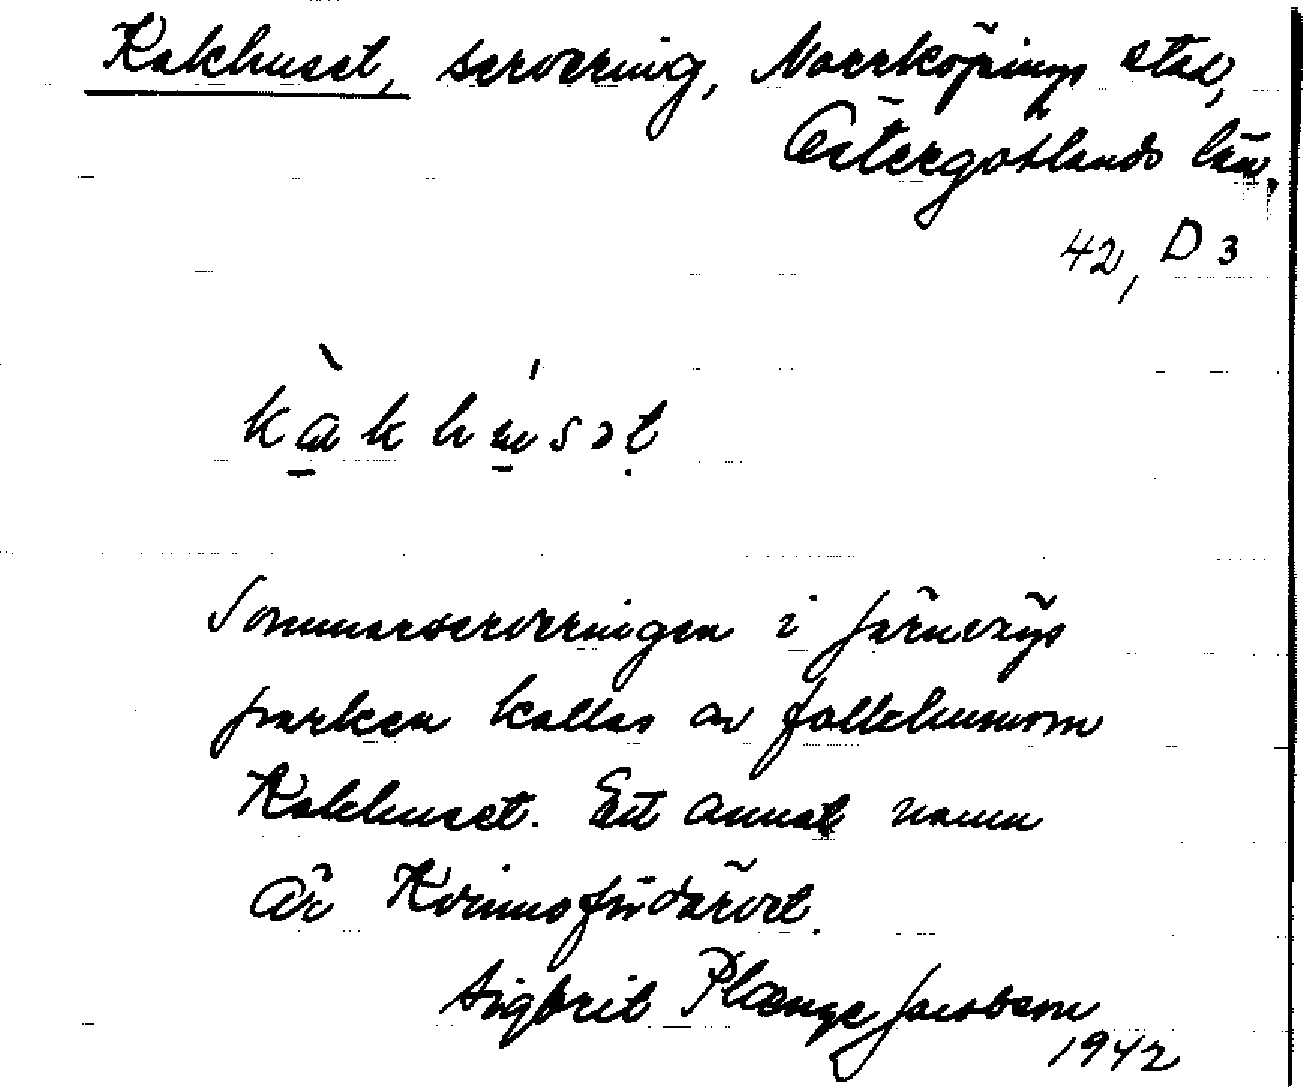 Kakhuset, servering, Norrköpings stad,
Östergötlands län.
42, D 3
kàkhúsət
Sommarserveringen i Järnvägs
parken kallas av folkhumorn
Kakhuset. Ett annat namn
är Kvinnofördärvet.
Sigbrit Plænge Jacobson
1942